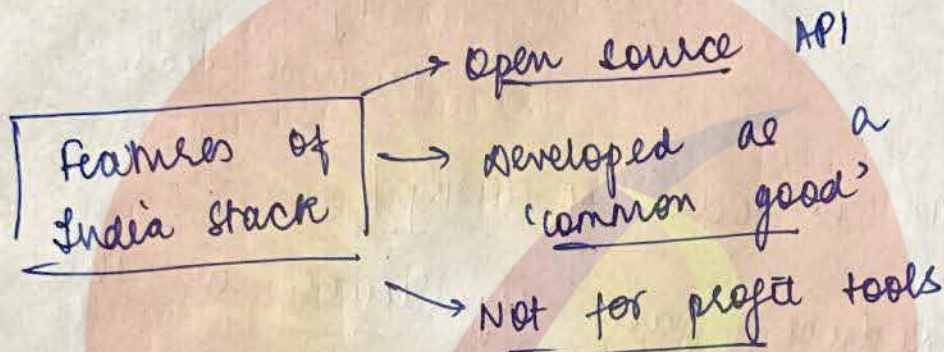 Features of
India Stack
→ Open source API
→ Developed as a
'common good'
→ Not for profit tools